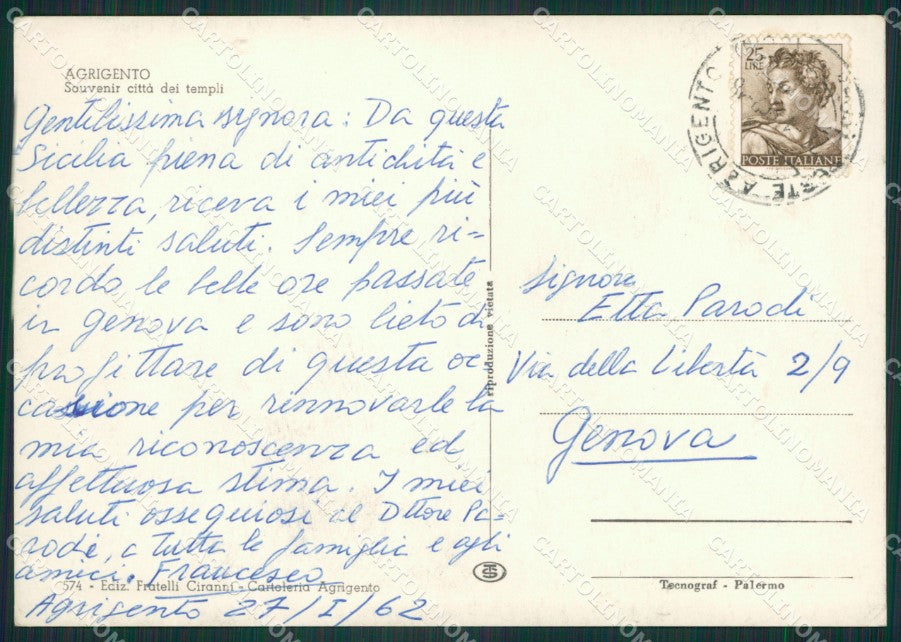 AGRIGENTO
Souvenir città dei templi
Gentilissima signora: Da questa
Sicilia piena di antichità e
bellezza, riceva i miei più
distinti saluti. Sempre ri=
cordo le belle ore passate
in Genova e sono lieto di
profittare di questa oc
casione per rinnovarle la
mia riconoscenza ed
affettuosa stima. I miei
saluti ossequiosi al Dttore Pa=
rodi, a tutta la famiglia e agli
amici. Francesco
574 - Ediz. Fratelli Ciranni - Cartoleria Agrigento
Agrigento 27/I/62
riproduzione vietata
25
LIRE
POSTE ITALIANE
AGRIGENTO
AGRIGENTO
Signora
Etta Parodi
Via della Libertà 2/9
Genova
Tecnograf - Palermo
CARTOLINOMANIA